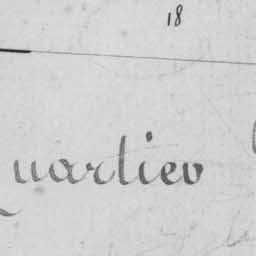 18
Quartier